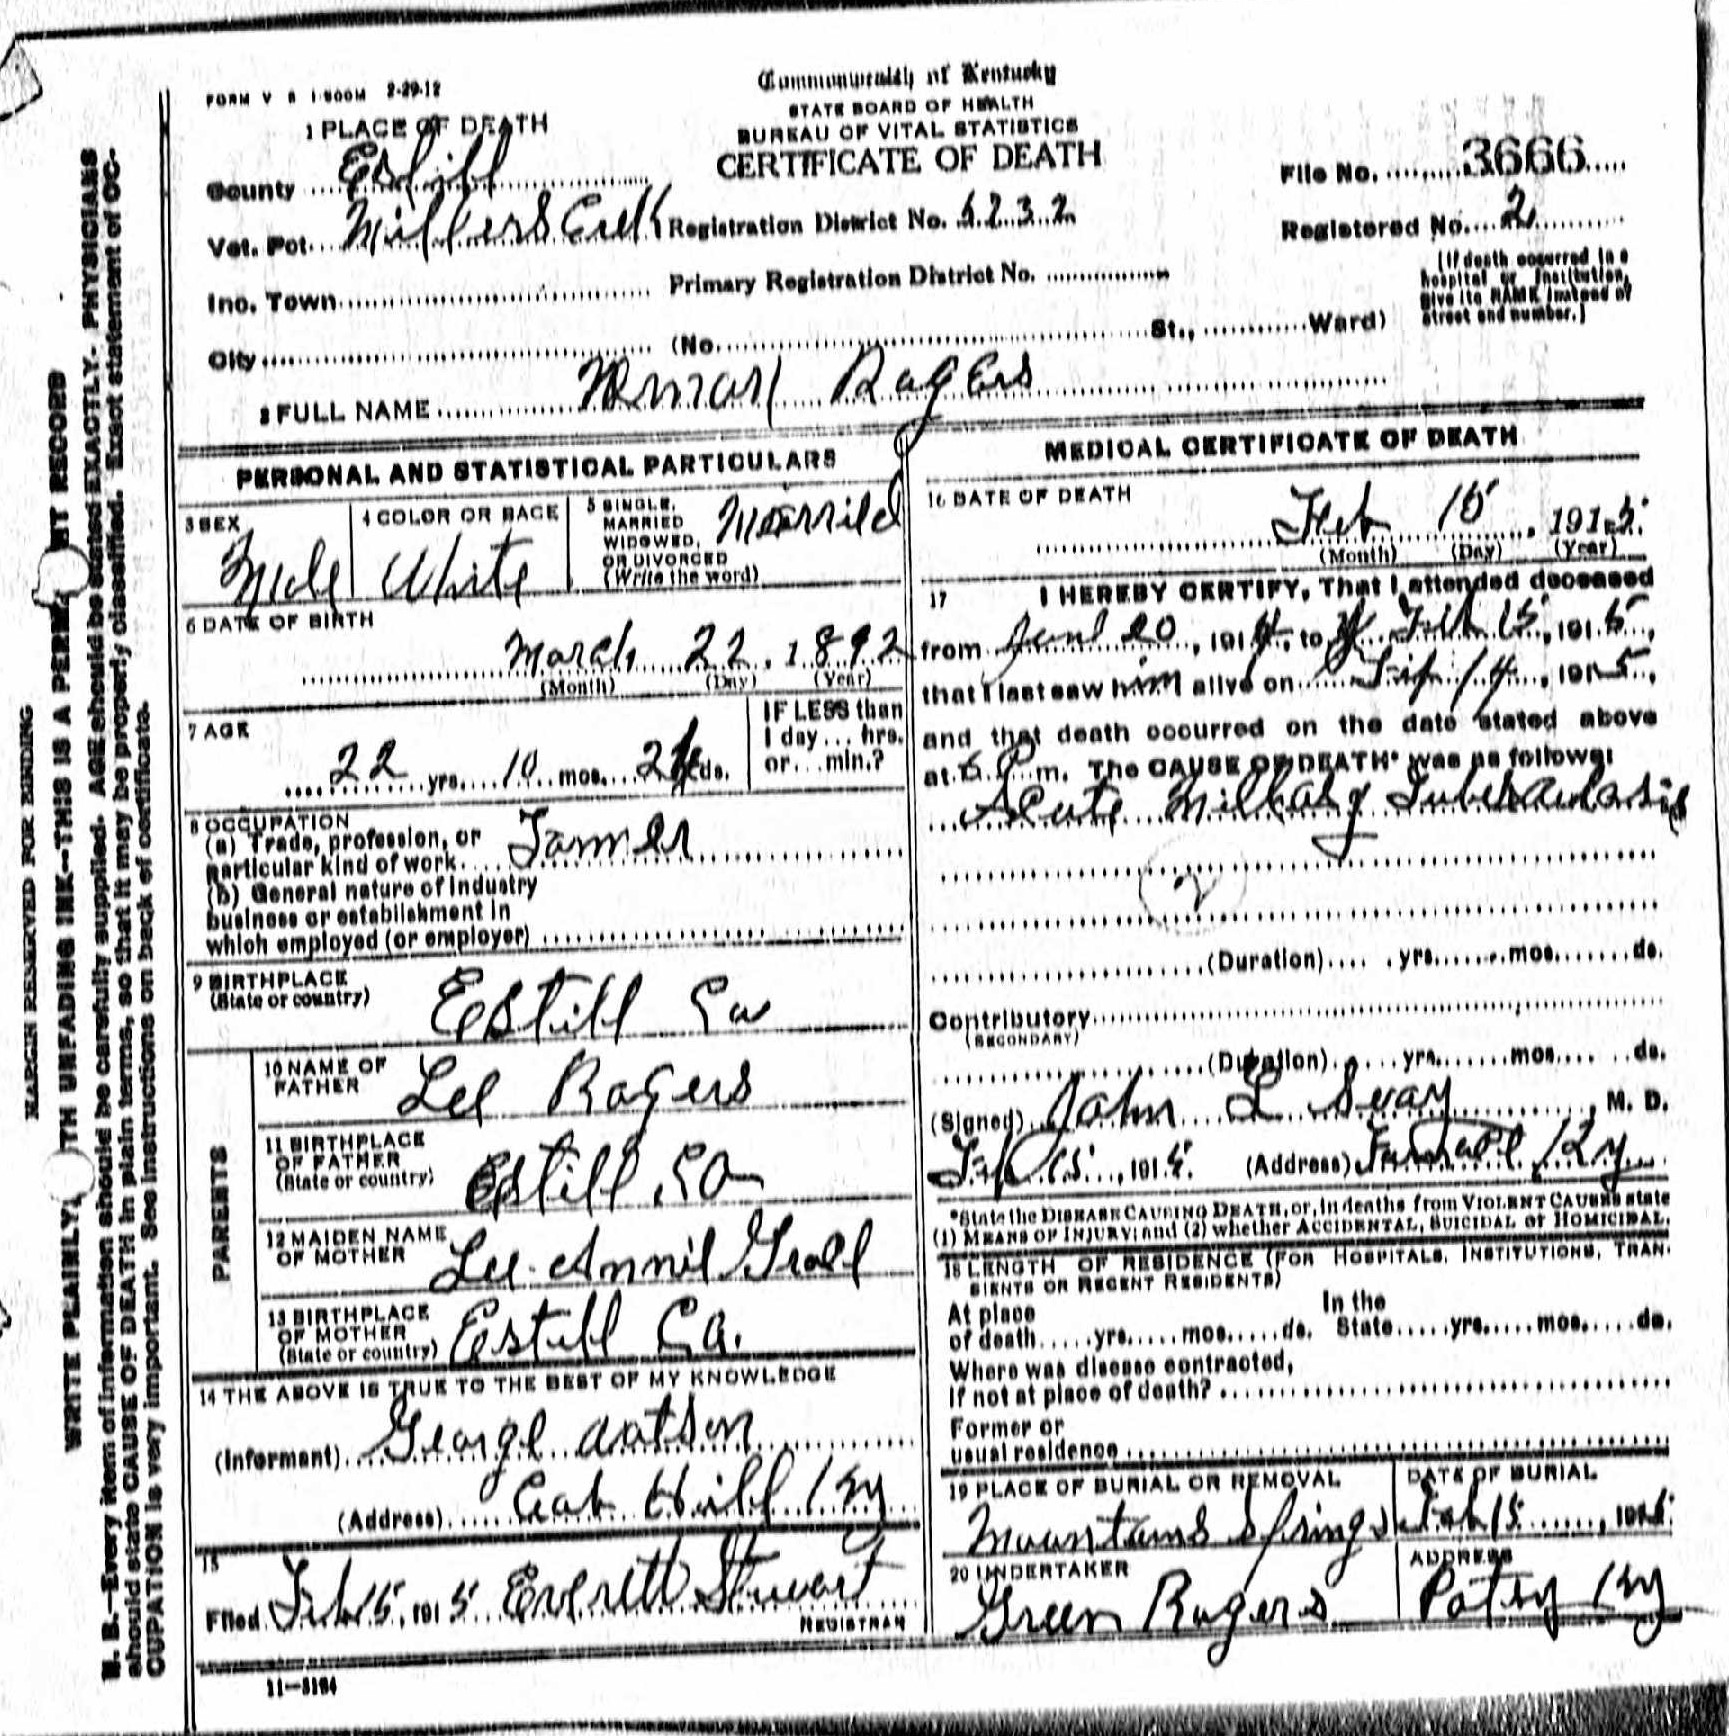 FORM V S 1-500M 2-29-12
Commonwealth of Kentucky
STATE BOARD OF HEALTH
BUREAU OF VITAL STATISTICS
CERTIFICATE OF DEATH
1 PLACE OF DEATH
County Estill
File No. 3666
Vot. Pct. Millers Creek Registration District No. 5232
Registered No. 2
Inc. Town Primary Registration District No.
(If death occurred in a
hospital or institution,
give its NAME instead of
street and number.)
City (No. St., Ward)
2 FULL NAME Rogers
PERSONAL AND STATISTICAL PARTICULARS
3 SEX
Male
4 COLOR OR RACE
White
5 SINGLE,
MARRIED
WIDOWED,
OR DIVORCED
(Write the word)
Married
6 DATE OF BIRTH
March 22, 1892
(Month) (Day) (Year)
7 AGE
22 yrs. 10 mos. ds.
IF LESS than
1 day ... hrs.
or ... min.?
8 OCCUPATION
(a) Trade, profession, or
particular kind of work Farmer
(b) General nature of Industry
business or establishment in
which employed (or employer)
9 BIRTHPLACE
(State or country)
Estill Co
PARENTS
10 NAME OF
FATHER
Lee Rogers
11 BIRTHPLACE
OF FATHER
(State or country)
Estill Co
12 MAIDEN NAME
OF MOTHER
Lee Annie
13 BIRTHPLACE
OF MOTHER
(State or country)
Estill Co.
14 THE ABOVE IS TRUE TO THE BEST OF MY KNOWLEDGE
(Informant) George Watson
(Address) Hill Ky
15
Filed Feb 15, 1915 Everett Stewart
REGISTRAR
11-3184
MEDICAL CERTIFICATE OF DEATH
16 DATE OF DEATH
Feb 15, 1915
(Month) (Day) (Year)
17 I HEREBY CERTIFY, That I attended deceased
from 20, 1914, to Feb 15, 1915,
that I last saw him alive on 14, 1915,
and that death occurred on the date stated above
at 6 P. m. The CAUSE OF DEATH* was as follows:
Acute Millary Tuberculosis
(Duration) yrs. mos. ds.
Contributory
(SECONDARY)
(Duration) yrs. mos. ds.
(Signed) John L , M. D.
Feb 15, 1915 (Address) Ky
*State the DISEASE CAUSING DEATH, or, in deaths from VIOLENT CAUSES state
(1) MEANS OF INJURY; and (2) whether ACCIDENTAL, SUICIDAL or HOMICIDAL.
18 LENGTH OF RESIDENCE (FOR HOSPITALS, INSTITUTIONS, TRAN-
SIENTS OR RECENT RESIDENTS)
At place
of death yrs. mos. ds.
In the
State yrs. mos. ds.
Where was disease contracted,
If not at place of death?
Former or
usual residence
19 PLACE OF BURIAL OR REMOVAL
Mountain Springs
DATE OF BURIAL
Feb 15, 1915
20 UNDERTAKER
Green Rogers
ADDRESS
Patsy Ky
MARGIN RESERVED FOR BINDING
WRITE PLAINLY, TH UNFADING INK--THIS IS A PERM NT RECORD
N. B.--Every item of information should be carefully supplied. AGE should be stated EXACTLY. PHYSICIANS
should state CAUSE OF DEATH in plain terms, so that it may be properly classified. Exact statement of OC-
CUPATION is very important. See instructions on back of certificate.